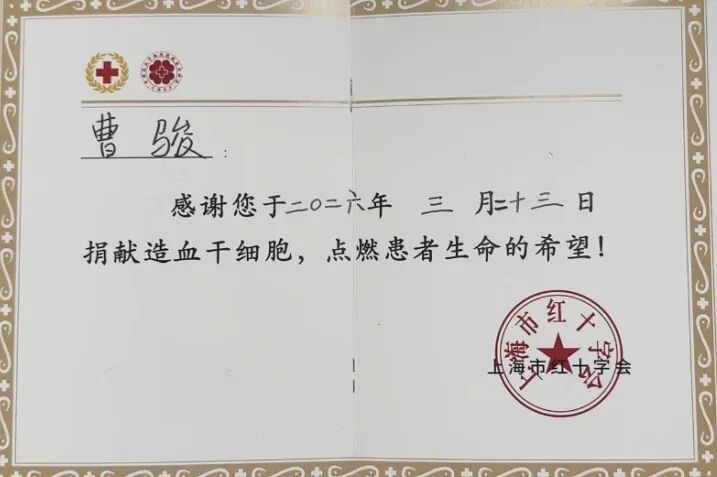 曹骏:
感谢您于二〇二六年 三 月二十三日
捐献造血干细胞，点燃患者生命的希望！
上海市红十字会
上海市红十字会